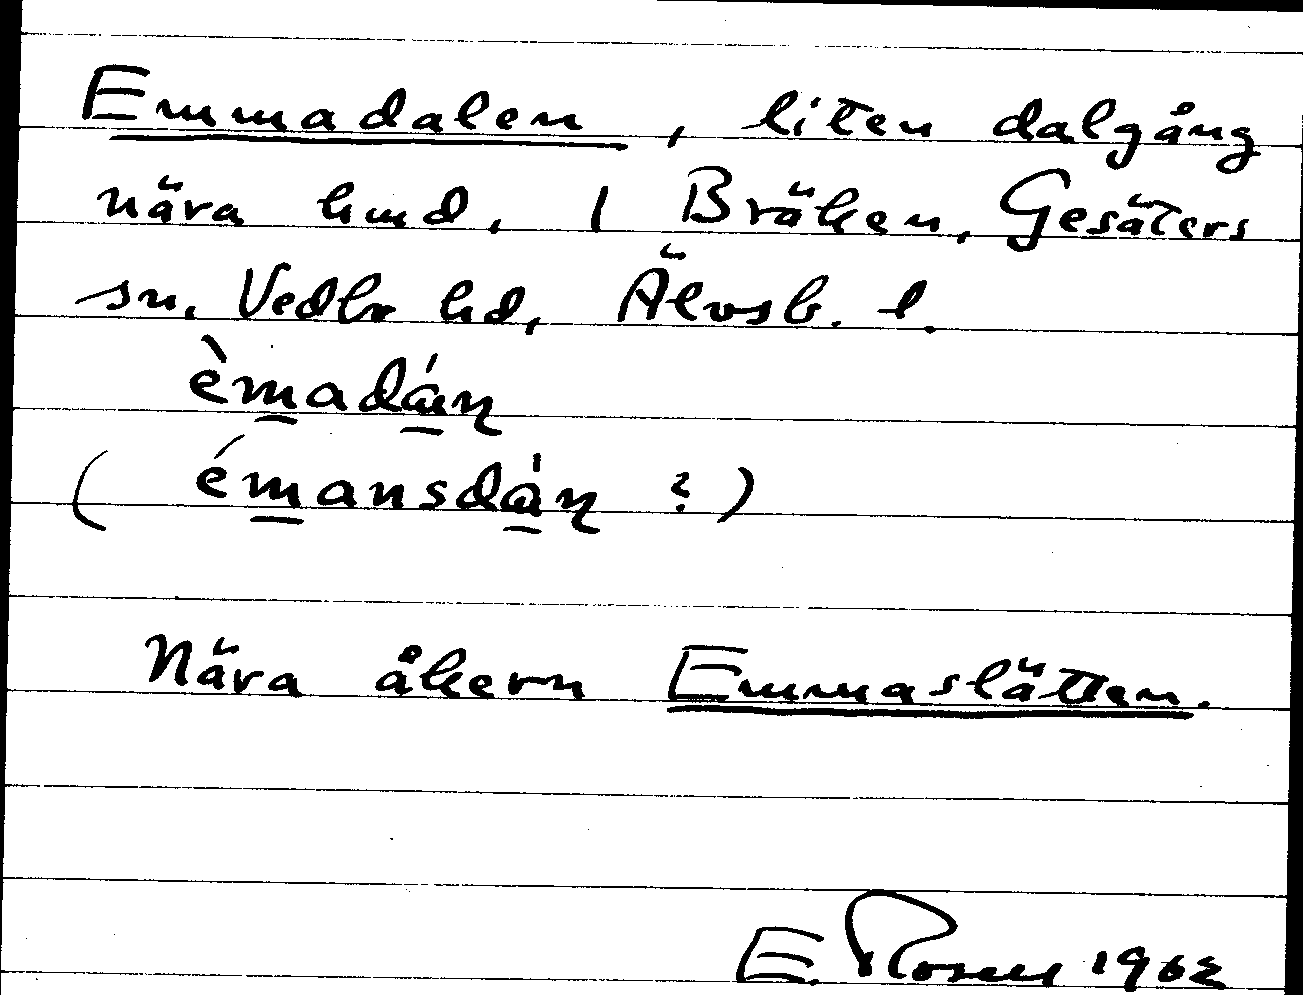 Emmadalen, liten dalgång
nära hmd, 1 Bräken, Gesäters
sn. Vedbo hd, Älvsb. l.
èmadáɳ
(émansdáɳ ?)
Nära åkern Emmaslätten.
E. 1962